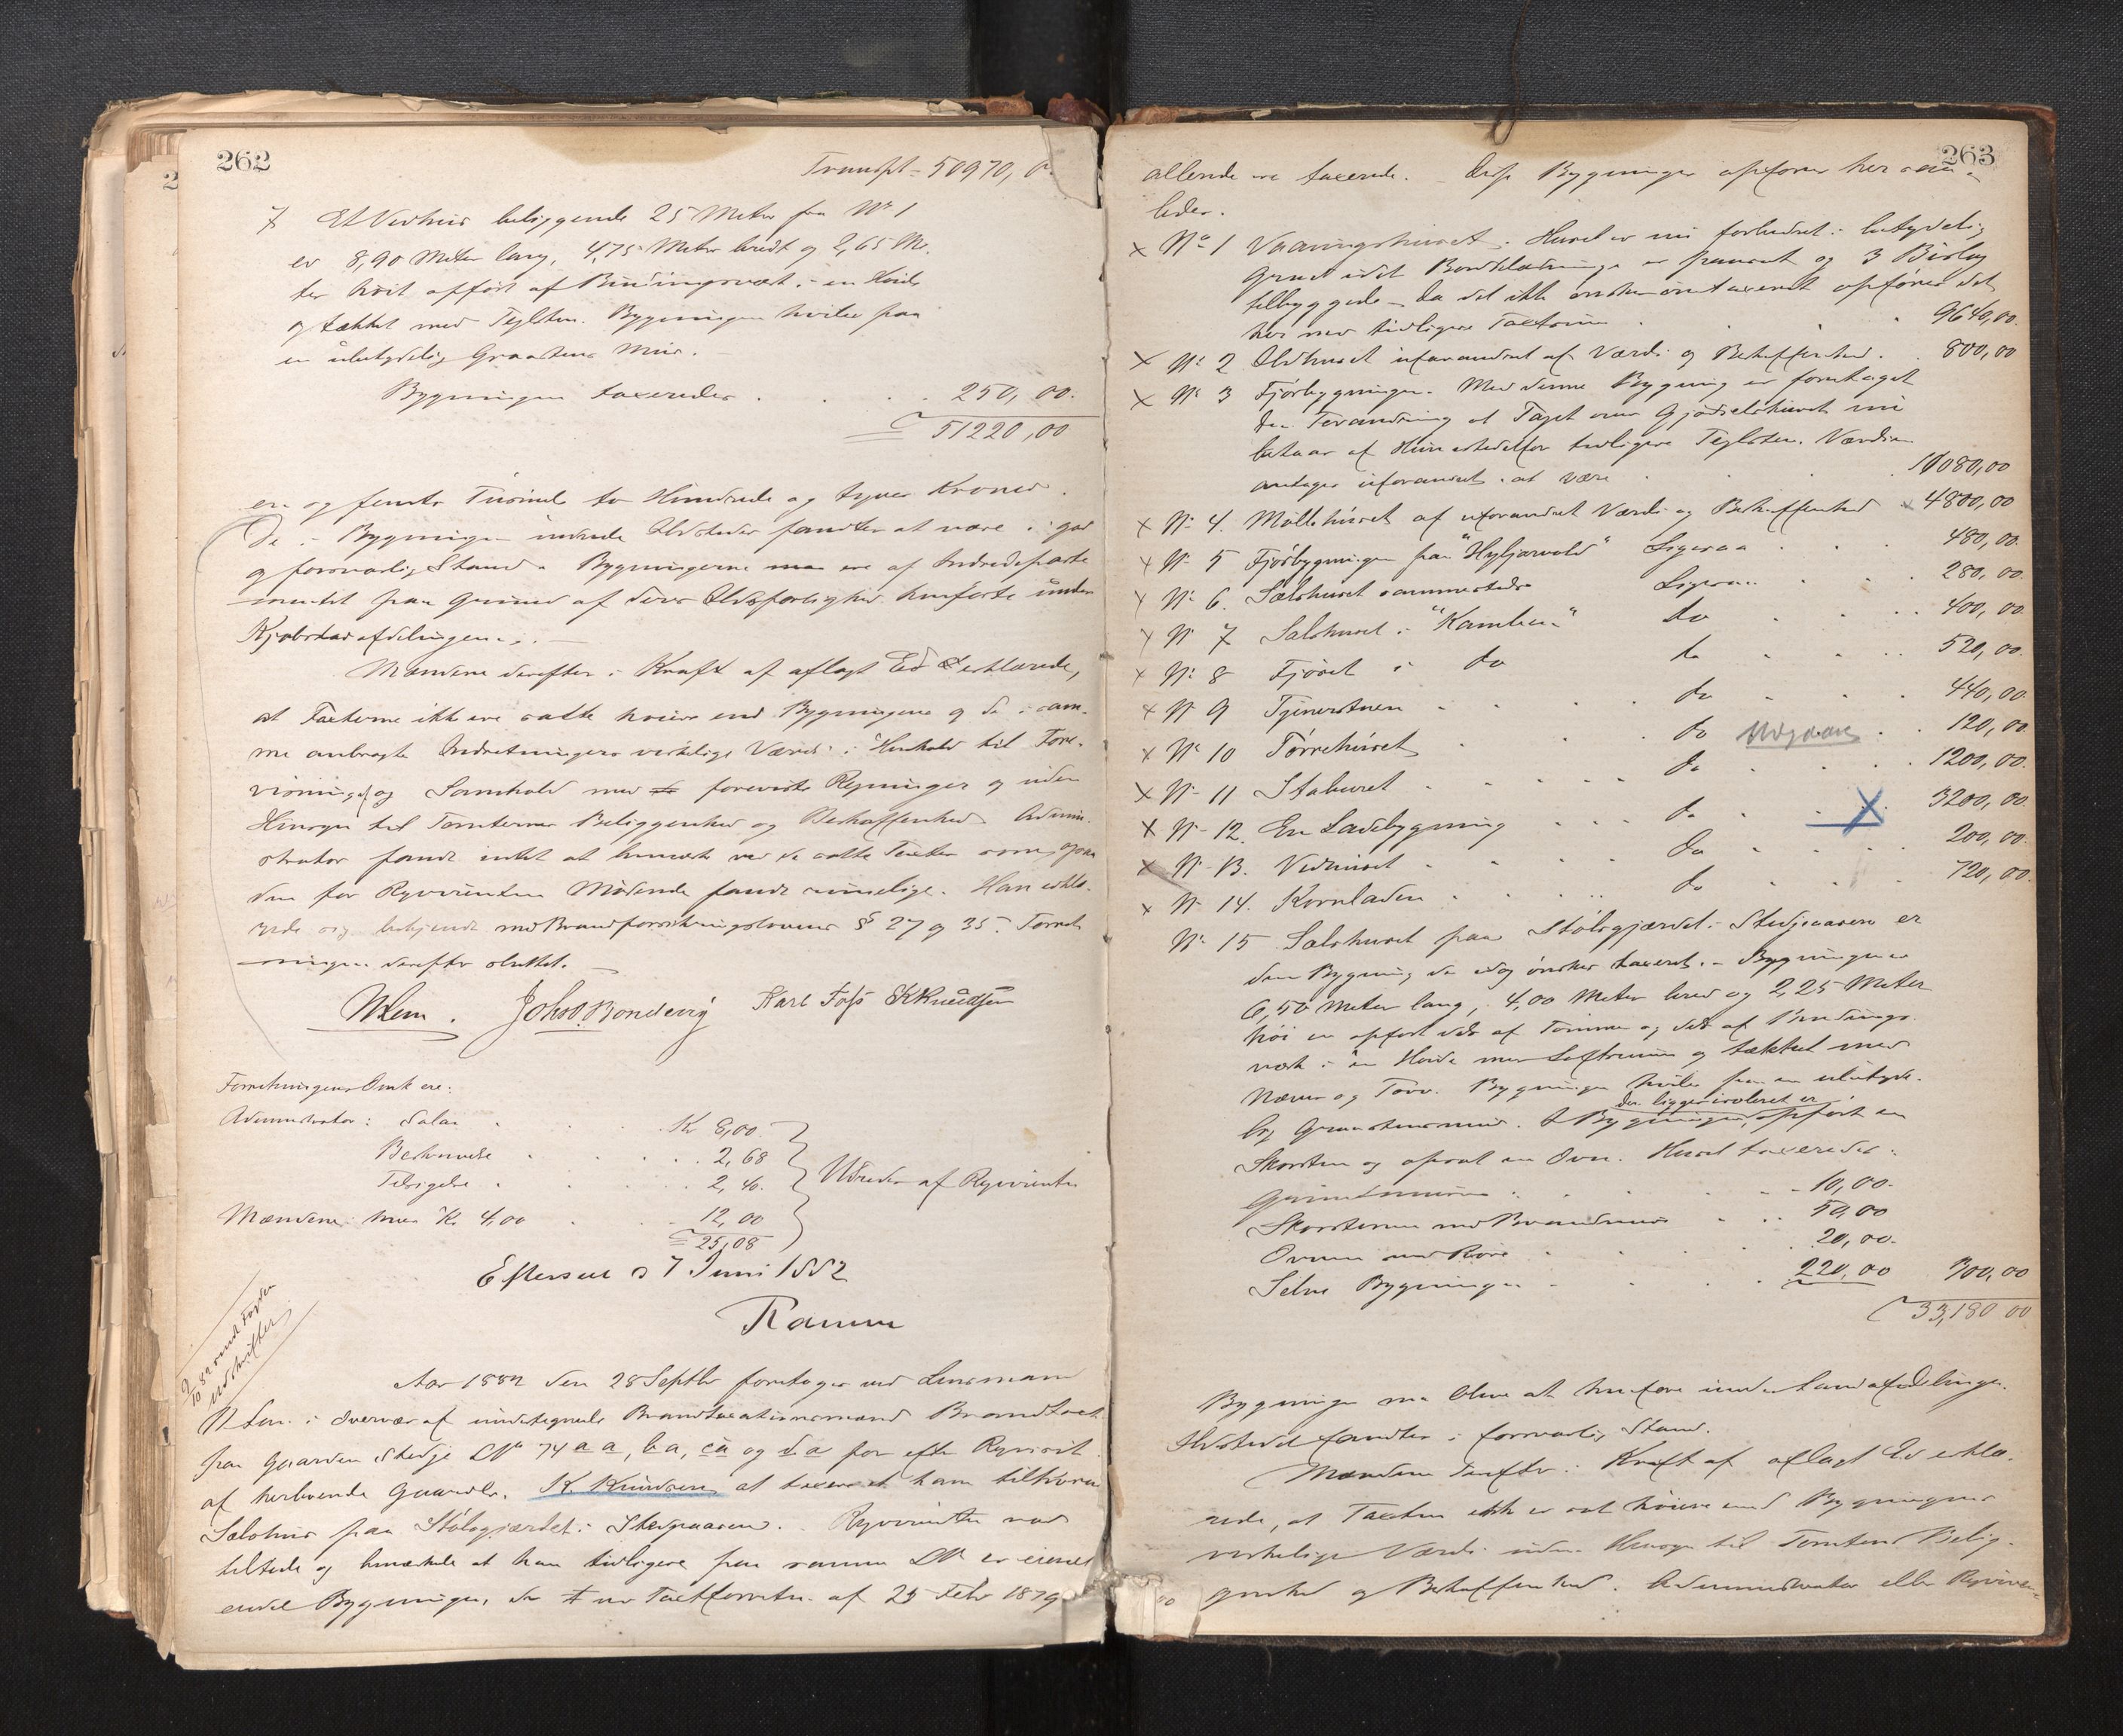 262
Transpt = 50970, 0
7 Et Vedhus beliggende 25 Meter fra No 1
er 8,90 Meter lang, 4,75 Meter bredt og 2,65 Me-
ter høit opført af Bindingsværk i en Høide
og tækket med Teglsten. Bygningen hviler paa
en ubetydelig Graastens Mur. -
Bygningen taxeredes . . . . 250, 00.
51220,00
en og femti Tusinde to Hundrede og tyve Kroner.
De i Bygningen indrede Ildsteder fandtes at være i god
og forsvarlig Stand. Bygningerne ere af Indredeparte
mentet paa Grund af deres Ildsfarlighed henførte under
Kjøbstadafdelingen. -
Mændene derefter i Kraft af aflagt Ed erklærede,
at Taxterne ikke ere satte høiere end Bygningerne og de i sam-
me anbragte Indretningers virkelige Værdi i Henhold til Fore-
visning og Samhold med foreviste Regninger og uden
Hensyn til Tomternes Beliggenhed og Beskaffenhed. Admini-
strator fandt intet at bemærke ved de satte Taxter som ogsaa
den for Rqvirenten Mødende fandt rimelige. Han erklæ-
rede sig bekjendt med Brandforsikringslovens § 27 og 35. Forret-
ningen derefter sluttet. -
NLem. Johs. O. Bondevig Karl Foss SKKnudsen
Forretningens Omk ere:
Administrator: Salær . . . . Kr 8,00.
Beskrivelse . . . . 2,68
Tilsigelse . . . . 2,40.
Udredes af Rqvirenten
Mændene: hver Kr 4,00 . . 12,00
25,08
Efterseet d 7 Juni 1882
Ramm
2/10 82 sendt Fogden
Udskrifter
Aar 1882 den 28 Septbr foretoges ved Lensmand
N Lem i Overvær af undertegnede Brandtaxationsmænd Brandtaxt
paa Gaarden Stedje LNo 74 a a, b a, c a og d a for efter Rqvisit
af herboende Gaardbr. K. Knudsen at taxere et ham tilhørende
Sælshus paa Stølsgjærdet i Stedjeaasen. Rqvirenten var
tilstede og bemærkede at han tidligere paa samme LNo er eiende
endel Bygninger, der ved Taxtforretn. af 25 Febr 1879
263
allerede ere taxerede. - Disse Bygninger opføres her saa-
ledes.
x No 1 Vaaningshuset. Huset er nu forbedret i betydelig
Grad idet Bordklædningen er panelet og 3 Bislag
tilbyggede - da det ikke ønskes omtaxeret opføres det
her med tidligere Taxtsum . . . . 9640,00.
x No 2 Ildhuset uforandret af Værdi og Beskaffenhed . . 800,00
x No 3 Fjøsbygningen. Med denne Bygning er foretaget
den Forandring at Taget over Gjødselshuset nu
bestaar af Hun istedetfor tidligere Teglsten. Værdien
antages uforandret at være . . . . 10080,00
x No 4. Møllehuset af uforandret Værdi og Beskaffenhed x 4800,00
x No 5 Fjøsbygningen paa "Hyljarvold" Ligesaa . . . 480,00.
x No 6. Sælshuset sammesteds Ligesaa . . . 280, 00.
x No 7 Sælshuset i "Kamben" do . . . 400, 00
x No 8 Fjøset i do do . . . 520, 00.
x No 9 Tjenerstuen . . . . do . . . 440,00
x No 10 Tørrehuset . . . do Udgaar . . 120, 00
x No 11 Staburet . . . . do . . . 1200, 00.
x No 12. En Ladebygning . . . do . . X . 3200, 00.
x No 13. Vedhuset . . . . do . . . 200, 00.
x No 14. Kornladen . . . . do . . . 720, 00.
No 15 Sælshuset paa Stølsgjærdet i Stedjeaasen er
den Bygning der idag ønskes taxeret. - Bygningen er
6,50 Meter lang, 4,00 Meter bred og 2,25 Meter
høi er opført dels af Tømmer og dels af Bindings-
værk i en Høide med Loftrum og tækket med
Næver og Torv. Bygningen hviler paa en ubetyde-
lig Graastensmur. I Bygningen, der ligger isoleret er opført en
Skorsten og opsat en Ovn. Huset taxeredes:
Grundmuren . . . . 10,00.
Skorstenen med Brandmur . . . 50,00
Ovnen med Rør . . . . 20,00.
Selve Bygningen . . . . 220,00 300,00
33,180 00
Bygningen ma blive at henføre under Landafdelingen.
Ildstedet fandtes i forsvarlig Stand.
Mændene derefter i Kraft af aflagt Ed erklæ-
rede, at Taxten ikke er sat høiere end Bygningens
virkelige Værdi uden Hensyn til Tomtens Belig-
genhed og Beskaffenhed. Administrator eller Rqviren-